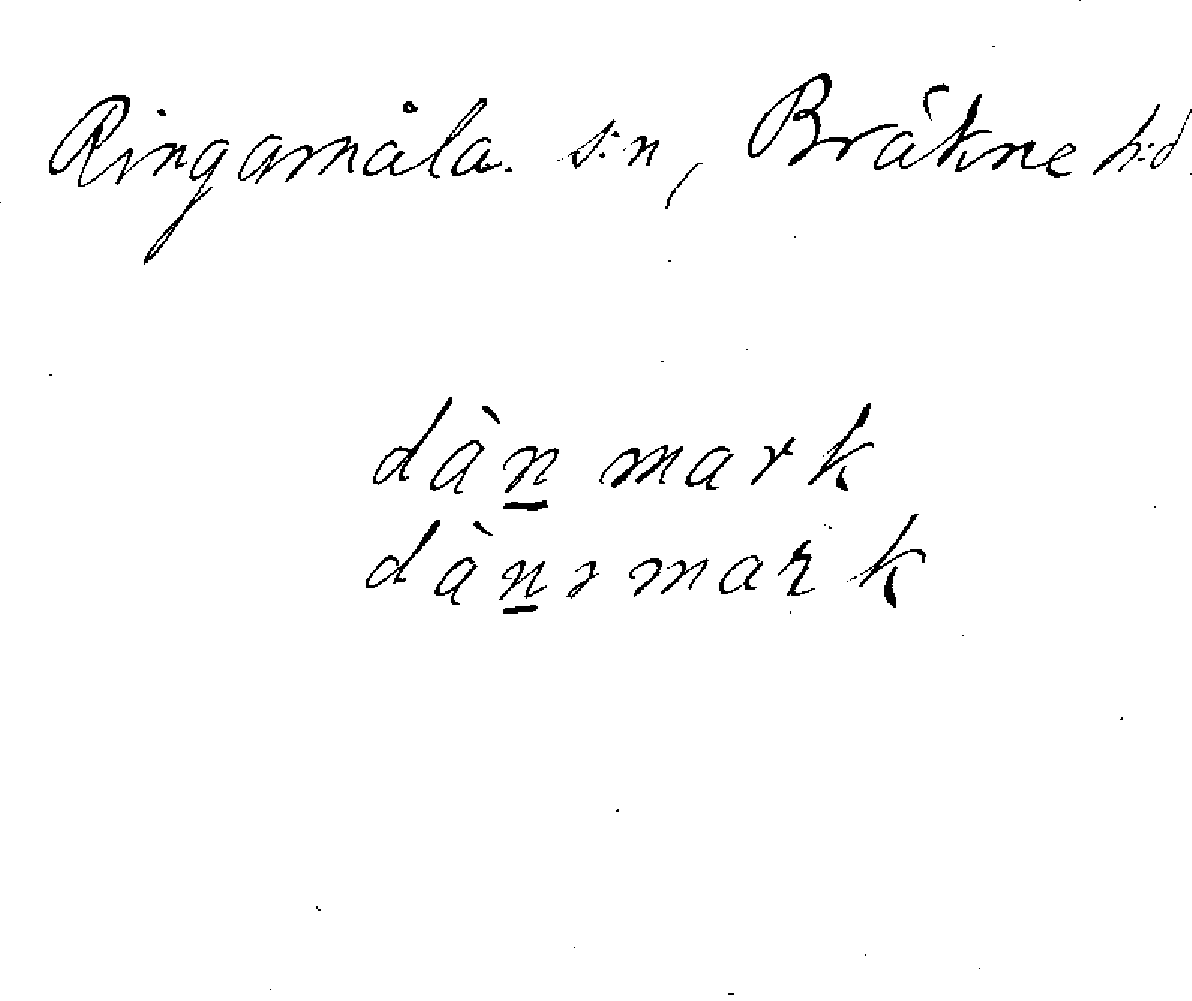 Ringamåla. s:n, Bräkne h:d.
dàn̲mark
dàn̲əmaꝛk